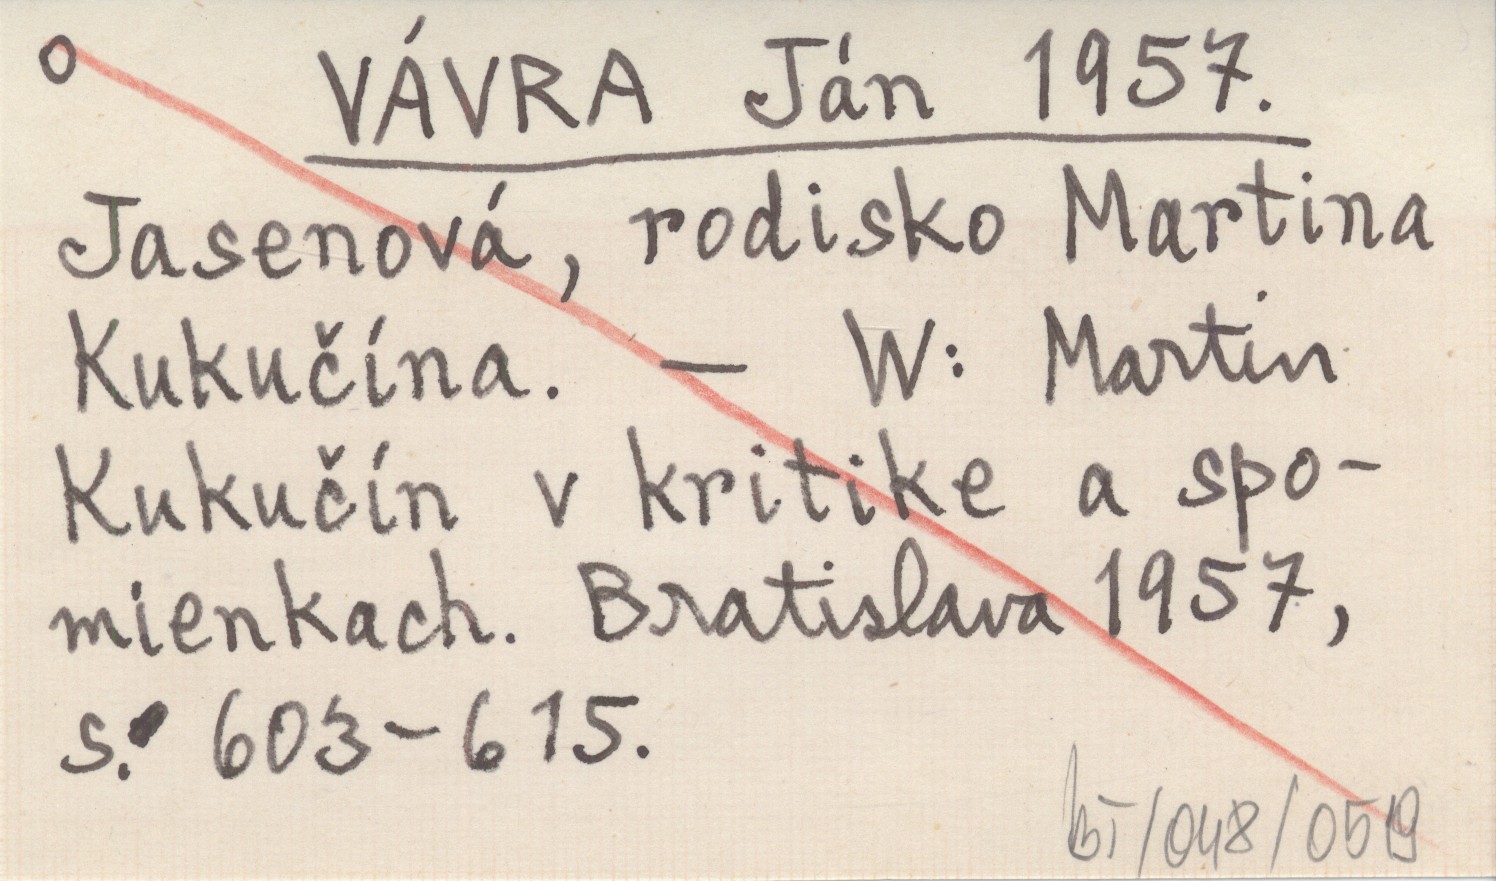 o VÁVRA Ján 1957.
Jasenová, rodisko Martina
Kukučína. — W: Martin
Kukučín v kritike a spo-
mienkach. Bratislava 1957,
s. 603-615.
/048/0519